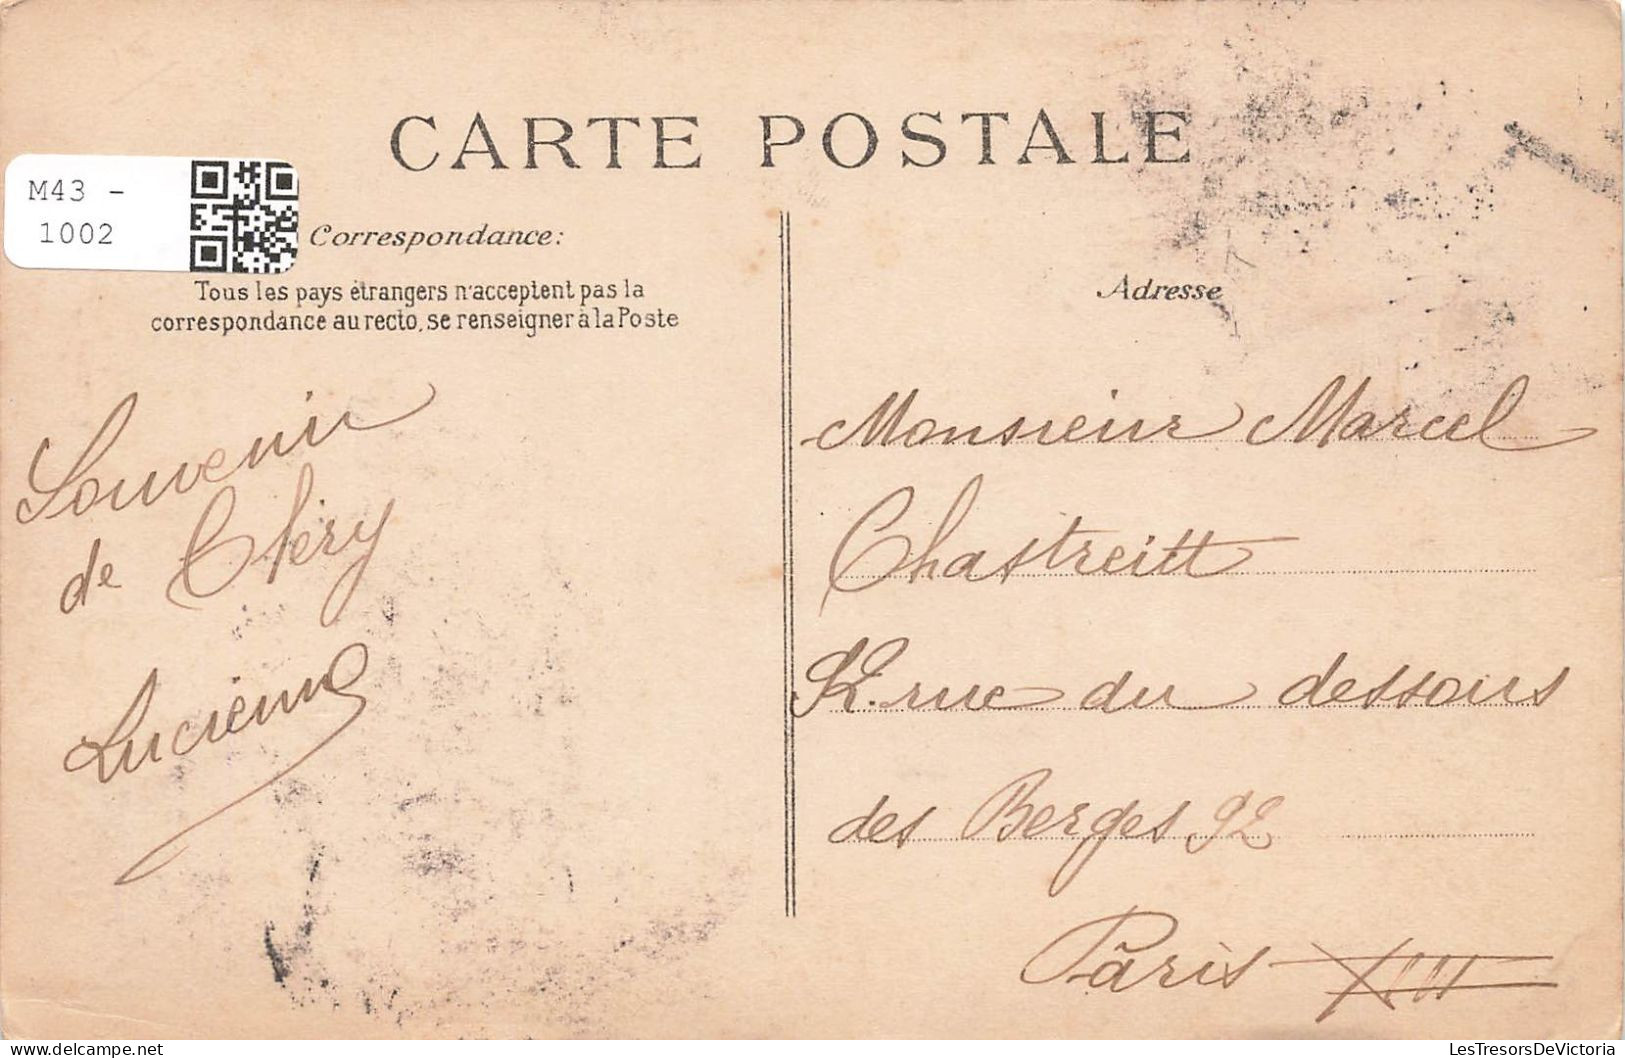 CARTE POSTALE
M43 -
1002
Correspondance:
Tous les pays étrangers n'acceptent pas la
correspondance au recto, se renseigner à la Poste
Adresse
Souvenir
de Cléry
Lucienne
Monsieur Marcel
Chastreitt
rue du dessous
des Berges 92
Paris XIII
LesTresorsDeVictoria